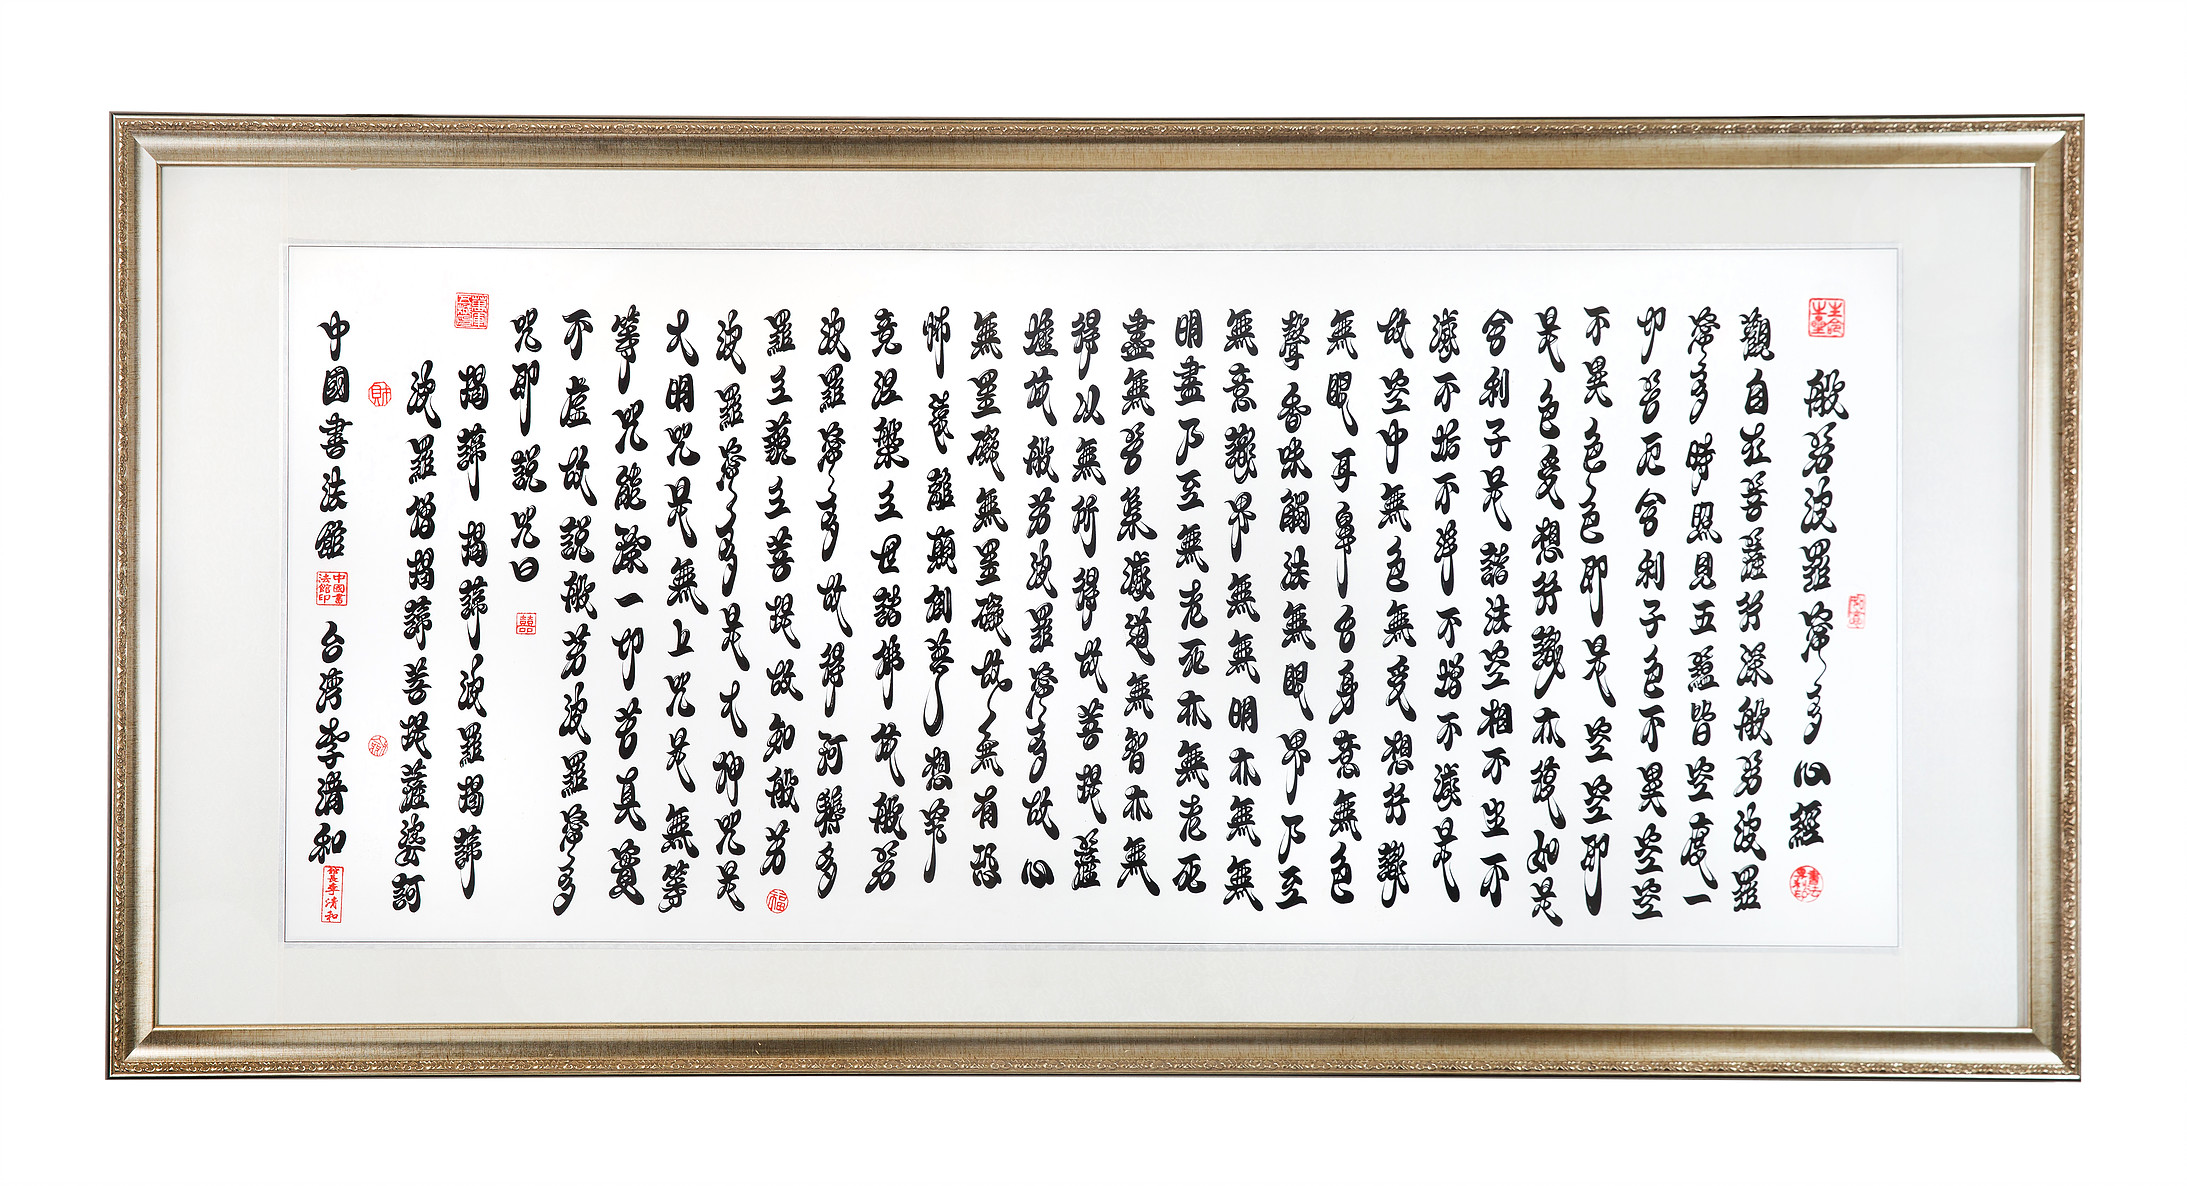 般若波羅蜜多心經
觀自在菩薩行深般若波羅
蜜多時照見五蘊皆空度一
切苦厄舍利子色不異空空
不異色色即是空空即
是色受想行識亦復如是
舍利子是諸法空相不生不
滅不垢不淨不增不減是
故空中無色無受想行識
無眼耳鼻舌身意無色
聲香味觸法無眼界乃至
無意識界無無明亦無無
明盡乃至無老死亦無老死
盡無苦集滅道無智亦無
得以無所得故菩提薩
埵依般若波羅蜜多故心
無罣礙無罣礙故無有恐
怖遠離顛倒夢想究
竟涅槃三世諸佛依般若
波羅蜜多故得阿耨多
羅三藐三菩提故知般若
福
波羅蜜多是大神咒是
大明咒是無上咒是無等
等咒能除一切苦真實
不虛故說般若波羅蜜多
咒即說咒曰
囍
揭諦揭諦波羅揭諦
波羅僧揭諦菩提薩婆訶
財
中國書法館
中國書法館印
台湾李清和
館長李清和